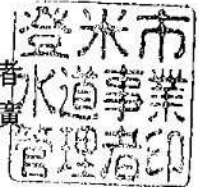 者 廣
登米市
水道事業
管理者印